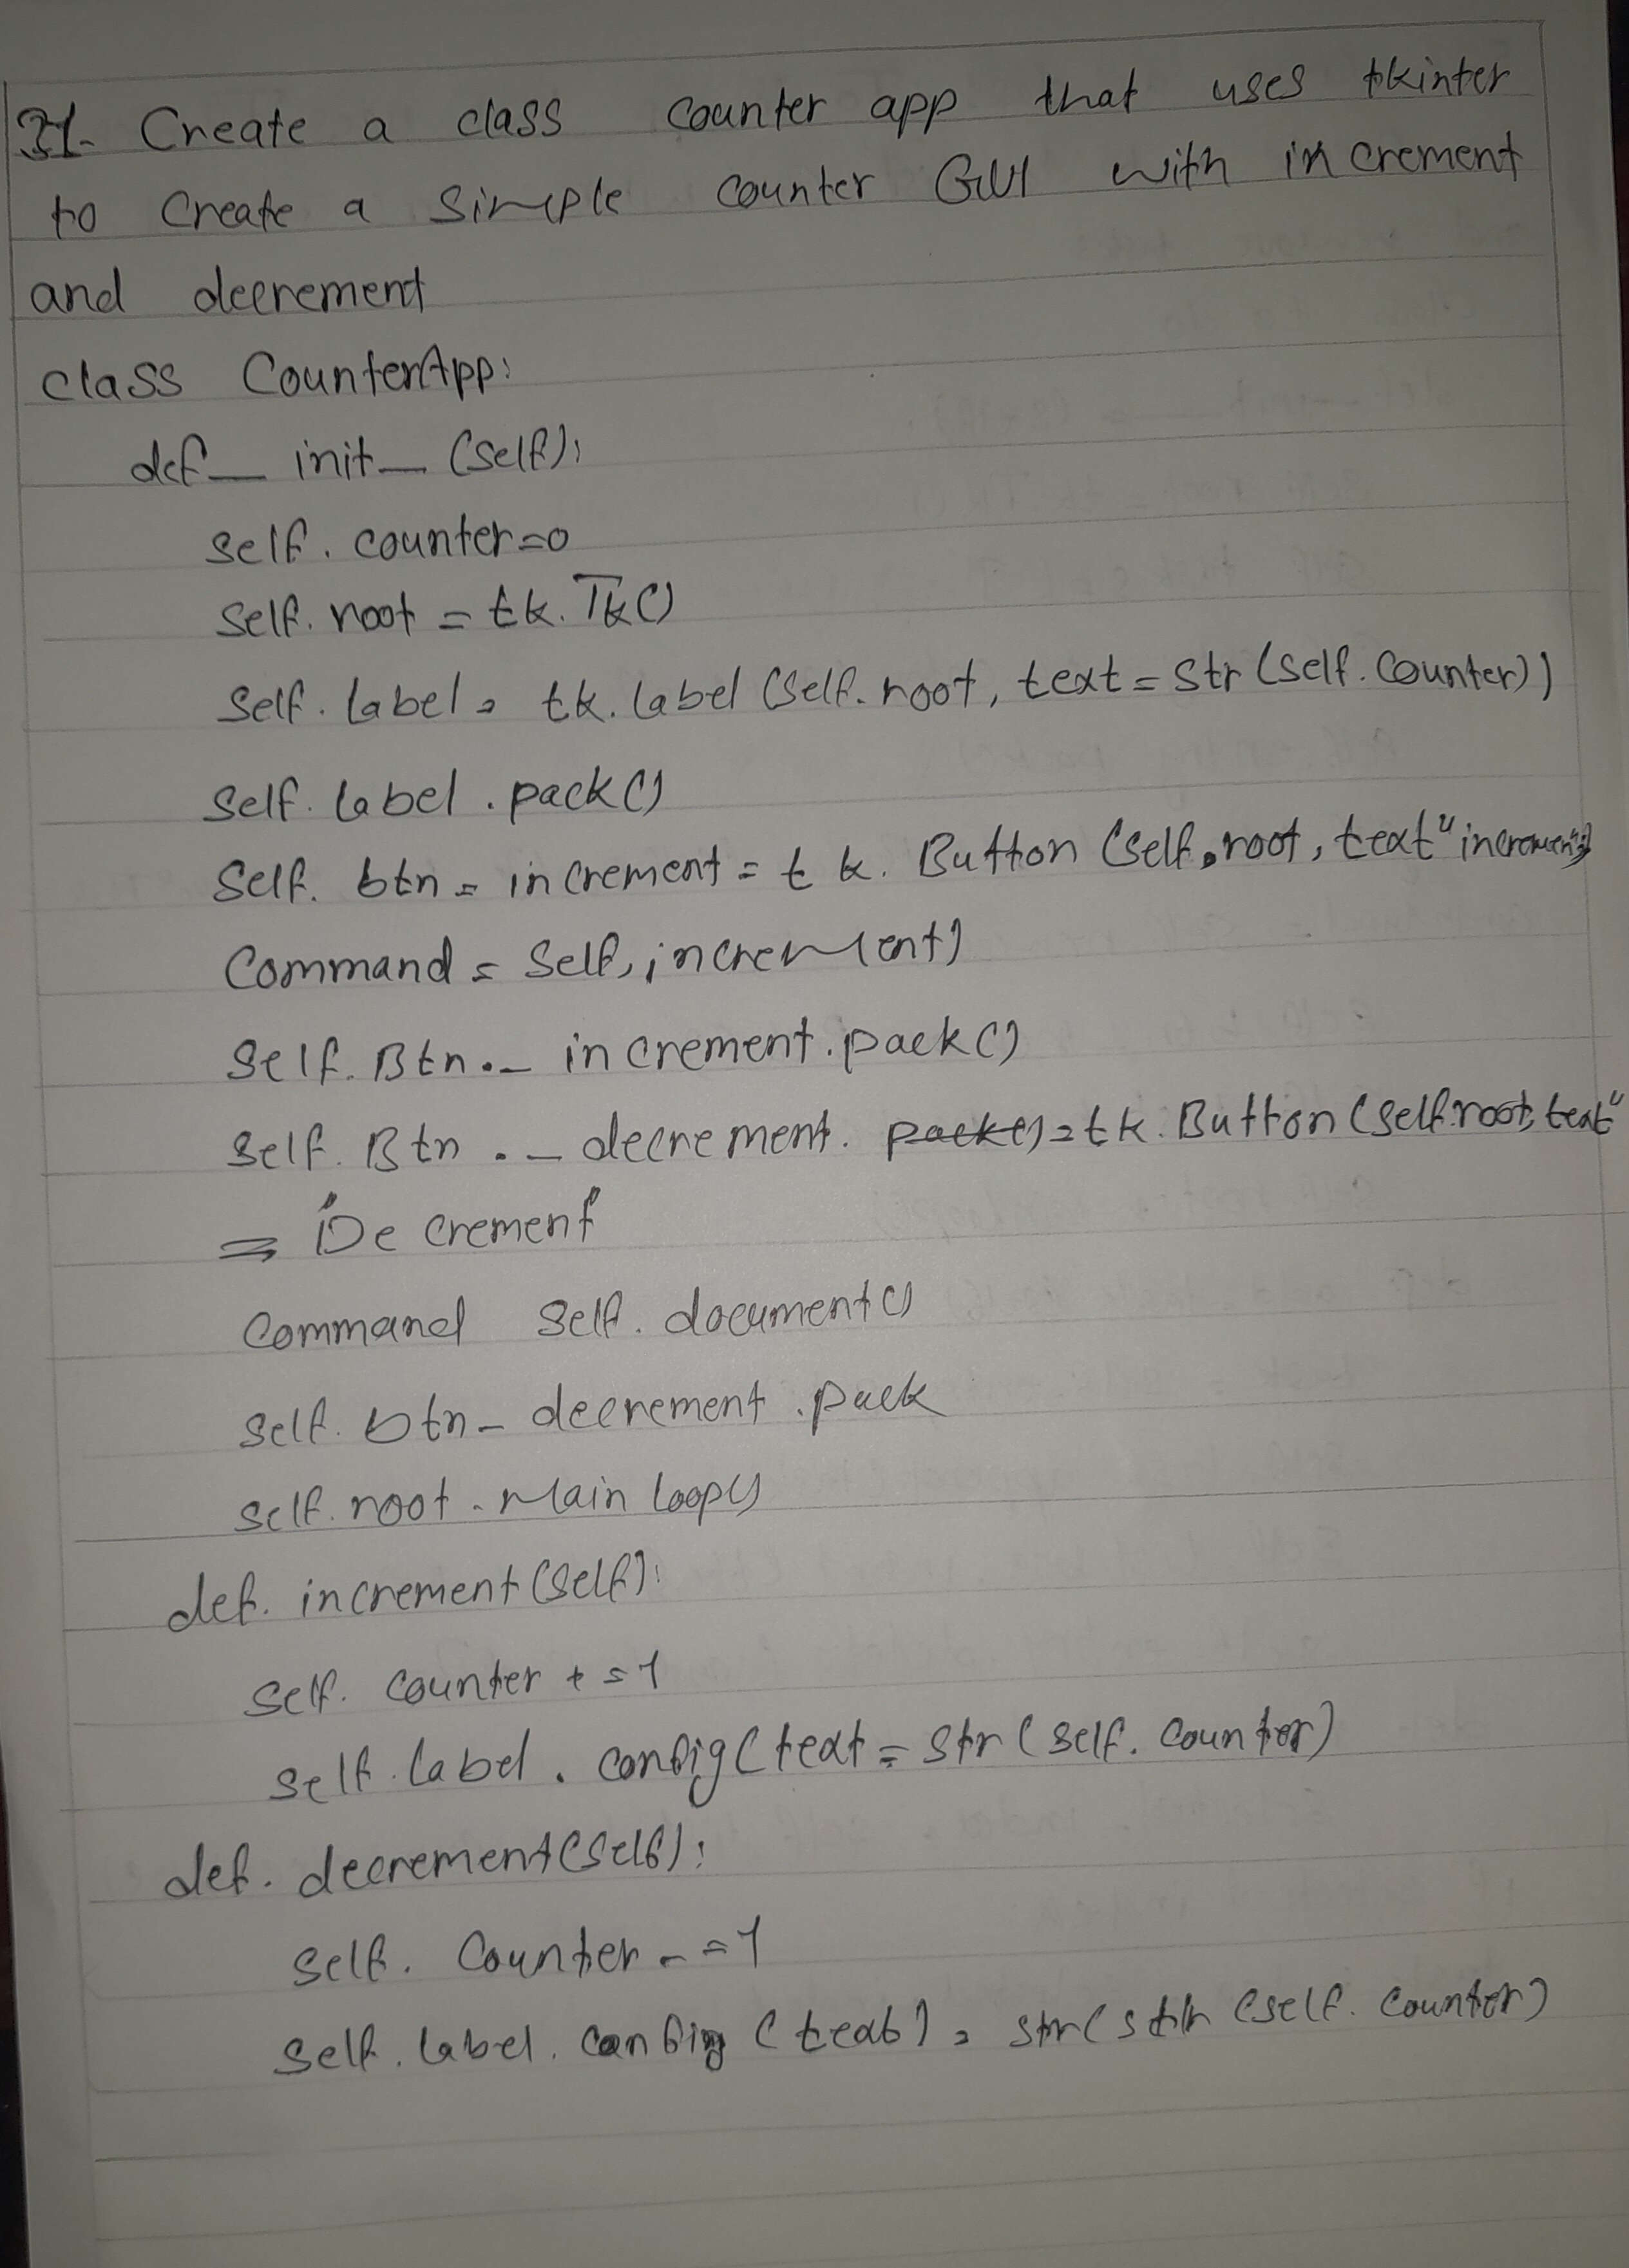 31. Create a class counter app that uses tkinter
to create a simple counter GUI with increment
and decrement
class CounterApp:
def _ init _ (self):
self. counter=0
self. root = tk. Tk()
self. label = tk. label (self. root, text = str (self. counter))
self. label . pack ()
self. btn = increment = tk. Button (self. root, text " increment")
Command = self, increment)
self. Btn . _ increment. pack ()
self. Btn . _ decrement. pack() = tk. Button (self.root, text "
= Decrement
Command self. document()
self. btn _ decrement . pack
self. root . Main loop()
def. increment (self):
self. counter + = 1
self. label . config ( text = str ( self. counter)
def. decrement (self):
self. Counter - = 1
self. label. config ( text ) = str ( str (self. counter)